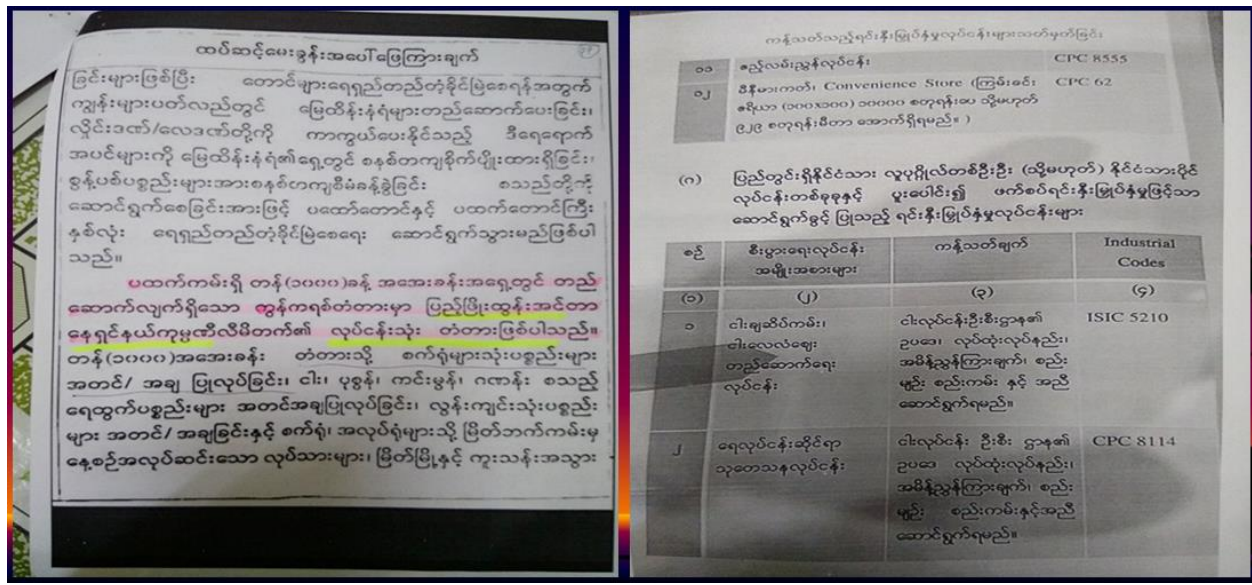 ထပ်ဆင့်မေးခွန်းအပေါ်ဖြေကြားချက်
ခြင်းများဖြစ်ပြီး တောင်များရေရှည်တည်တံ့ခိုင်မြဲစေရန်အတွက်
ကျွန်းများပတ်လည်တွင် မြေထိန်းနံရံများတည်ဆောက်ပေးခြင်း၊
လှိုင်းဒဏ်/လေဒဏ်တို့ကို ကာကွယ်ပေးနိုင်သည့် ဒီရေရောက်
အပင်များကို မြေထိန်းနံရံ၏ရှေ့တွင် စနစ်တကျစိုက်ပျိုးထားရှိခြင်း၊
စွန့်ပစ်ပစ္စည်းများအားစနစ်တကျစီမံခန့်ခွဲခြင်း စသည်တို့ကို
ဆောင်ရွက်စေခြင်းအားဖြင့် ပထော်တောင်နှင့် ပထက်တောင်ကြီး
နှစ်လုံး ရေရှည်တည်တံ့ခိုင်မြဲစေရေး ဆောင်ရွက်သွားမည်ဖြစ်ပါ
သည်။
ပထက်ကမ်းရှိ တန်(၁၀၀၀)ခန့် အအေးခန်းအရှေ့တွင် တည်
ဆောက်လျက်ရှိသော ကွန်ကရစ်တံတားမှာ ပြည့်ဖြိုးထွန်းအင်တာ
နေရှင်နယ်ကုမ္ပဏီလီမိတက်၏ လုပ်ငန်းသုံး တံတားဖြစ်ပါသည်။
တန်(၁၀၀၀)အအေးခန်း တံတားသို့ စက်ရုံများသုံးပစ္စည်းများ
အတင်/ အချ ပြုလုပ်ခြင်း၊ ငါး၊ ပုစွန်၊ ကင်းမွန်၊ ဂဏန်း စသည့်
ရေထွက်ပစ္စည်းများ အတင်အချပြုလုပ်ခြင်း၊ လွန်းကျင်းသုံးပစ္စည်း
များ အတင်/ အချခြင်းနှင့် စက်ရုံ၊ အလုပ်ရုံများသို့ မြိတ်ဘက်ကမ်းမှ
နေ့စဉ်အလုပ်ဆင်းသော လုပ်သားများ၊ မြိတ်မြို့နှင့် ကူးသန်းအသွား
ကန့်သတ်သည့်ရင်းနှီးမြှုပ်နှံမှုလုပ်ငန်းများသတ်မှတ်ခြင်း
၁၁ ဧည့်လမ်းညွှန်လုပ်ငန်း CPC 8555
၁၂ မီနီမားကတ်၊ Convenience Store (ကြမ်းခင်း CPC 62
ဧရိယာ (၁၀၀x၁၀၀) ၁၀၀၀၀ စတုရန်းပေ သို့မဟုတ်
၉၂၉ စတုရန်းမီတာ အောက်ရှိရမည်။ )
(ဂ) ပြည်တွင်းရှိနိုင်ငံသား လူပုဂ္ဂိုလ်တစ်ဦးဦး (သို့မဟုတ်) နိုင်ငံသားပိုင်
လုပ်ငန်းတစ်ခုခုနှင့် ပူးပေါင်း၍ ဖက်စပ်ရင်းနှီးမြှုပ်နှံမှုဖြင့်သာ
ဆောင်ရွက်ခွင့် ပြုသည့် ရင်းနှီးမြှုပ်နှံမှုလုပ်ငန်းများ
စဉ် စီးပွားရေးလုပ်ငန်း ကန့်သတ်ချက် Industrial
အမျိုးအစားများ Codes
(၁) (၂) (၃) (၄)
၁ ငါးချဆိပ်ကမ်း၊ ငါးလုပ်ငန်းဦးစီးဌာန၏ ISIC 5210
ငါးလေလံဈေး ဥပဒေ၊ လုပ်ထုံးလုပ်နည်း၊
တည်ဆောက်ရေး အမိန့်ညွှန်ကြားချက်၊ စည်း
လုပ်ငန်း မျဉ်း စည်းကမ်း နှင့် အညီ
ဆောင်ရွက်ရမည်။
၂ ရေလုပ်ငန်းဆိုင်ရာ ငါးလုပ်ငန်း ဦးစီး ဌာန၏ CPC 8114
သုတေသနလုပ်ငန်း ဥပဒေ လုပ်ထုံးလုပ်နည်း၊
အမိန့်ညွှန်ကြားချက်၊ စည်း
မျဉ်း စည်းကမ်းနှင့်အညီ
ဆောင်ရွက်ရမည်။